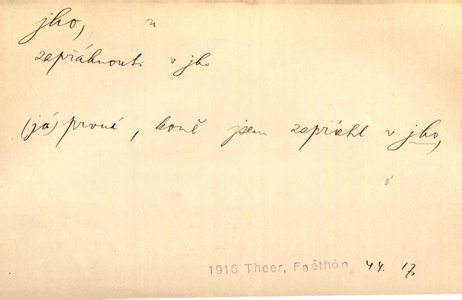 jho, n
zapřáhnouti v jho
(já) první, koně jsem zapřáhl v jho,
1916 Theer, Faëthón 44. 17.